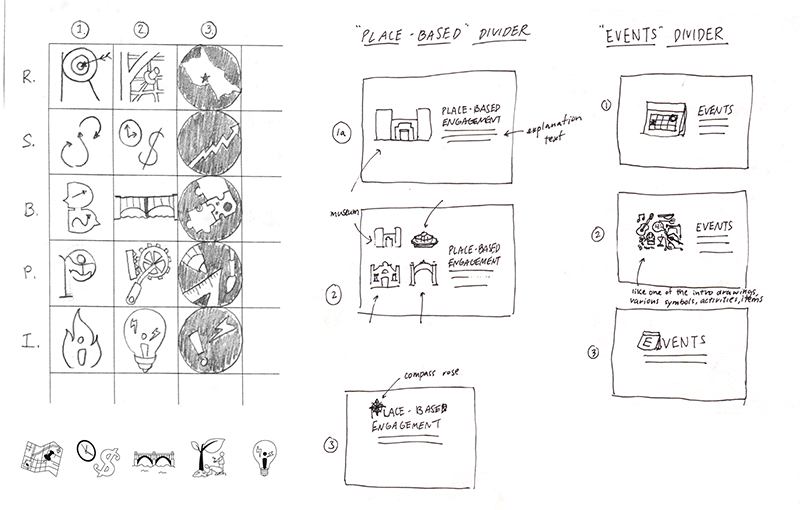 1.
2
3.
R.
S.
B.
P.
I.
"PLACE-BASED" DIVIDER
1a
PLACE-BASED
ENGAGEMENT
explanation
text
museum
2
PLACE-BASED
ENGAGEMENT
compass rose
3
PLACE-BASED
ENGAGEMENT
"EVENTS" DIVIDER
1
EVENTS
2
EVENTS
like one of the intro drawings,
various symbols, activities, items
3
EVENTS